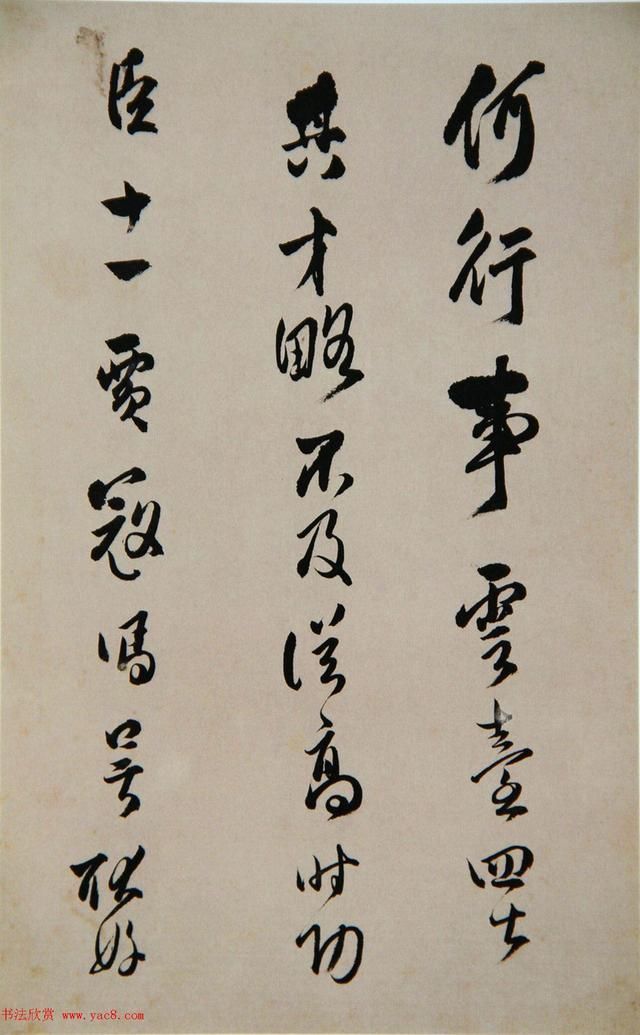 何行事雲臺四七
其才略不及從高時功
臣十一賈寇馮吳耿好
书法欣赏 www.yac8.com